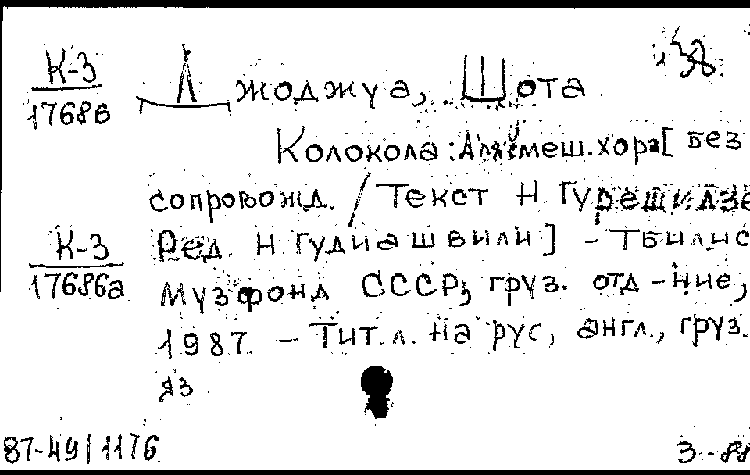 К-3
17686в
Джоджуа, Шота
Колокола: Для смеш. хора [без
сопровожд. / Текст Н Гурешидзе
К-3
17686а
Ред. Н Гудиашвили] - Тбилис
Музфонд СССР, груз. отд-ние,
1987. - Тит. л. на рус, англ., груз.
яз
87-49 | 1176
3-88